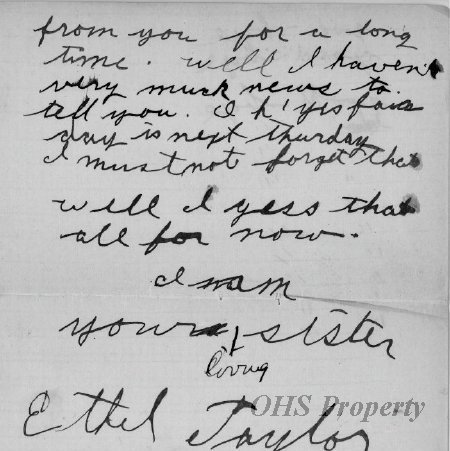 from you for a long
time. well I haven't
very much news to
tell you. I h! yes fair
day is next thurday
I must not forget that
well I yess that
all for now.
I am
your sister
loving
Ethel Taylor
OHS Property